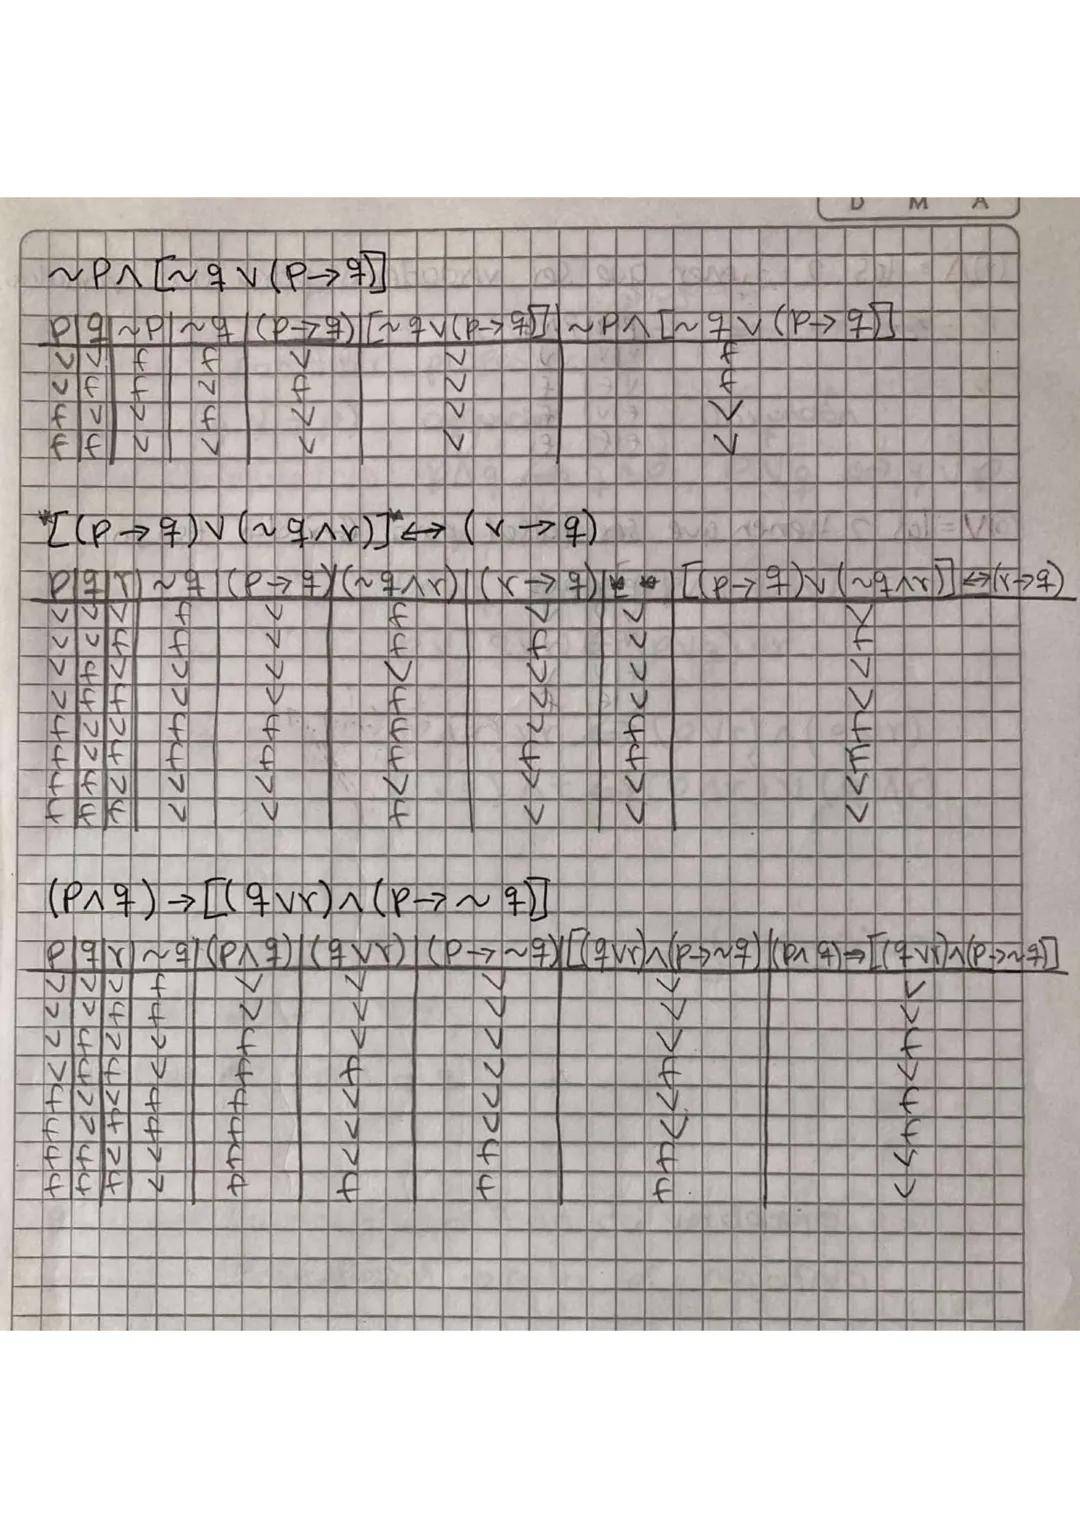 D M A
~p∧[~q∨(p→q)]
p|q|~p|~q|(p→q)|[~q∨(p→q)]|~p∧[~q∨(p→q)]
v v f f v v f
v f f v f v f
f v v f v v v
f f v v v v v
*[(p→q)∨(~q∧r)]*↔(r→q)
p|q|r|~q|(p→q)|(~q∧r)|(r→q)|* *|[(p→q)∨(~q∧r)]↔(r→q)
v v v f v f v v v
v v f f v f f v f
v f v v v v v v v
v f f v v f v v v
f v v f f f v f f
f v f f f f f f f
f f v v v v v v v
f f f v v f v v v
(p∧q)→[(q∨r)∧(p→~q)]
p|q|r|~q|(p∧q)|(q∨r)|(p→~q)|[(q∨r)∧(p→~q)|(p∧q)→[(q∨r)∧(p→~q)]
v v v f v v v v v
v v f f v v v v v
v f v v f v v v f
v f f v f f v f v
f v v f f v v v f
f v f f f v v v f
f f v v f v f f v
f f f v f f f f v